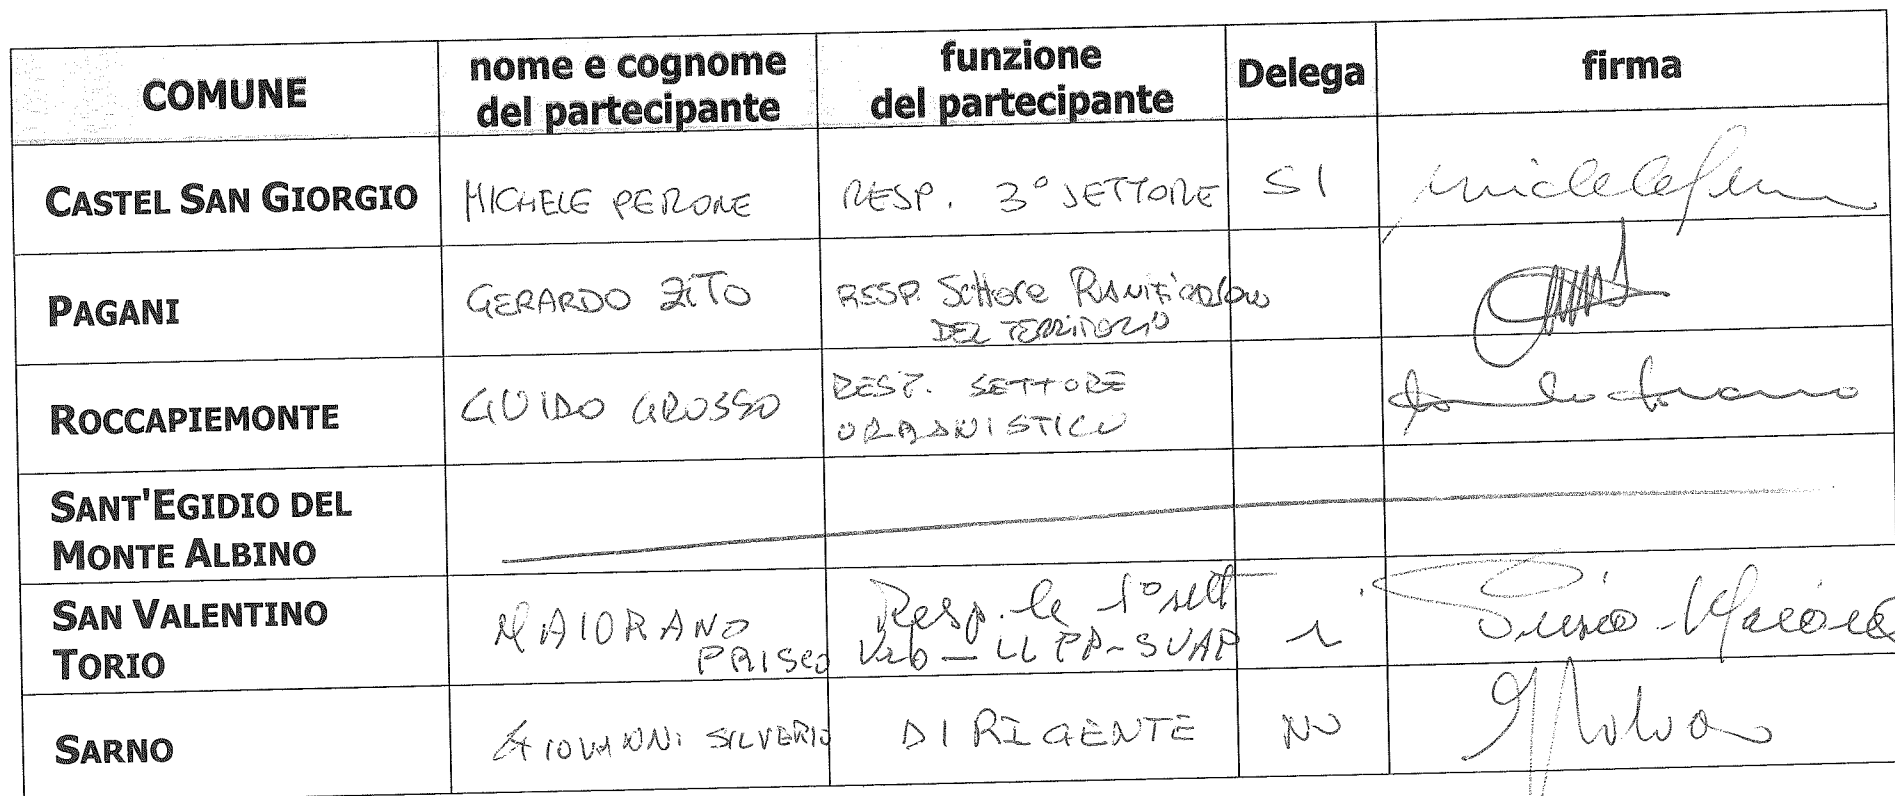 COMUNE
nome e cognome
del partecipante
funzione
del partecipante
Delega
firma
CASTEL SAN GIORGIO
MICHELE PERONE
RESP. 3° SETTORE
SI
PAGANI
GERARDO ZITO
RESP. Settore Pianificazione
DEL TERRITORIO
ROCCAPIEMONTE
GUIDO GROSSO
RESP. SETTORE
URBANISTICO
SANT'EGIDIO DEL
MONTE ALBINO
SAN VALENTINO
TORIO
MAIORANO
PRISCO
Resp.le 1° sett
LL PP - SUAP
SARNO
GIOVANNI SILVERIO
DIRIGENTE
NO